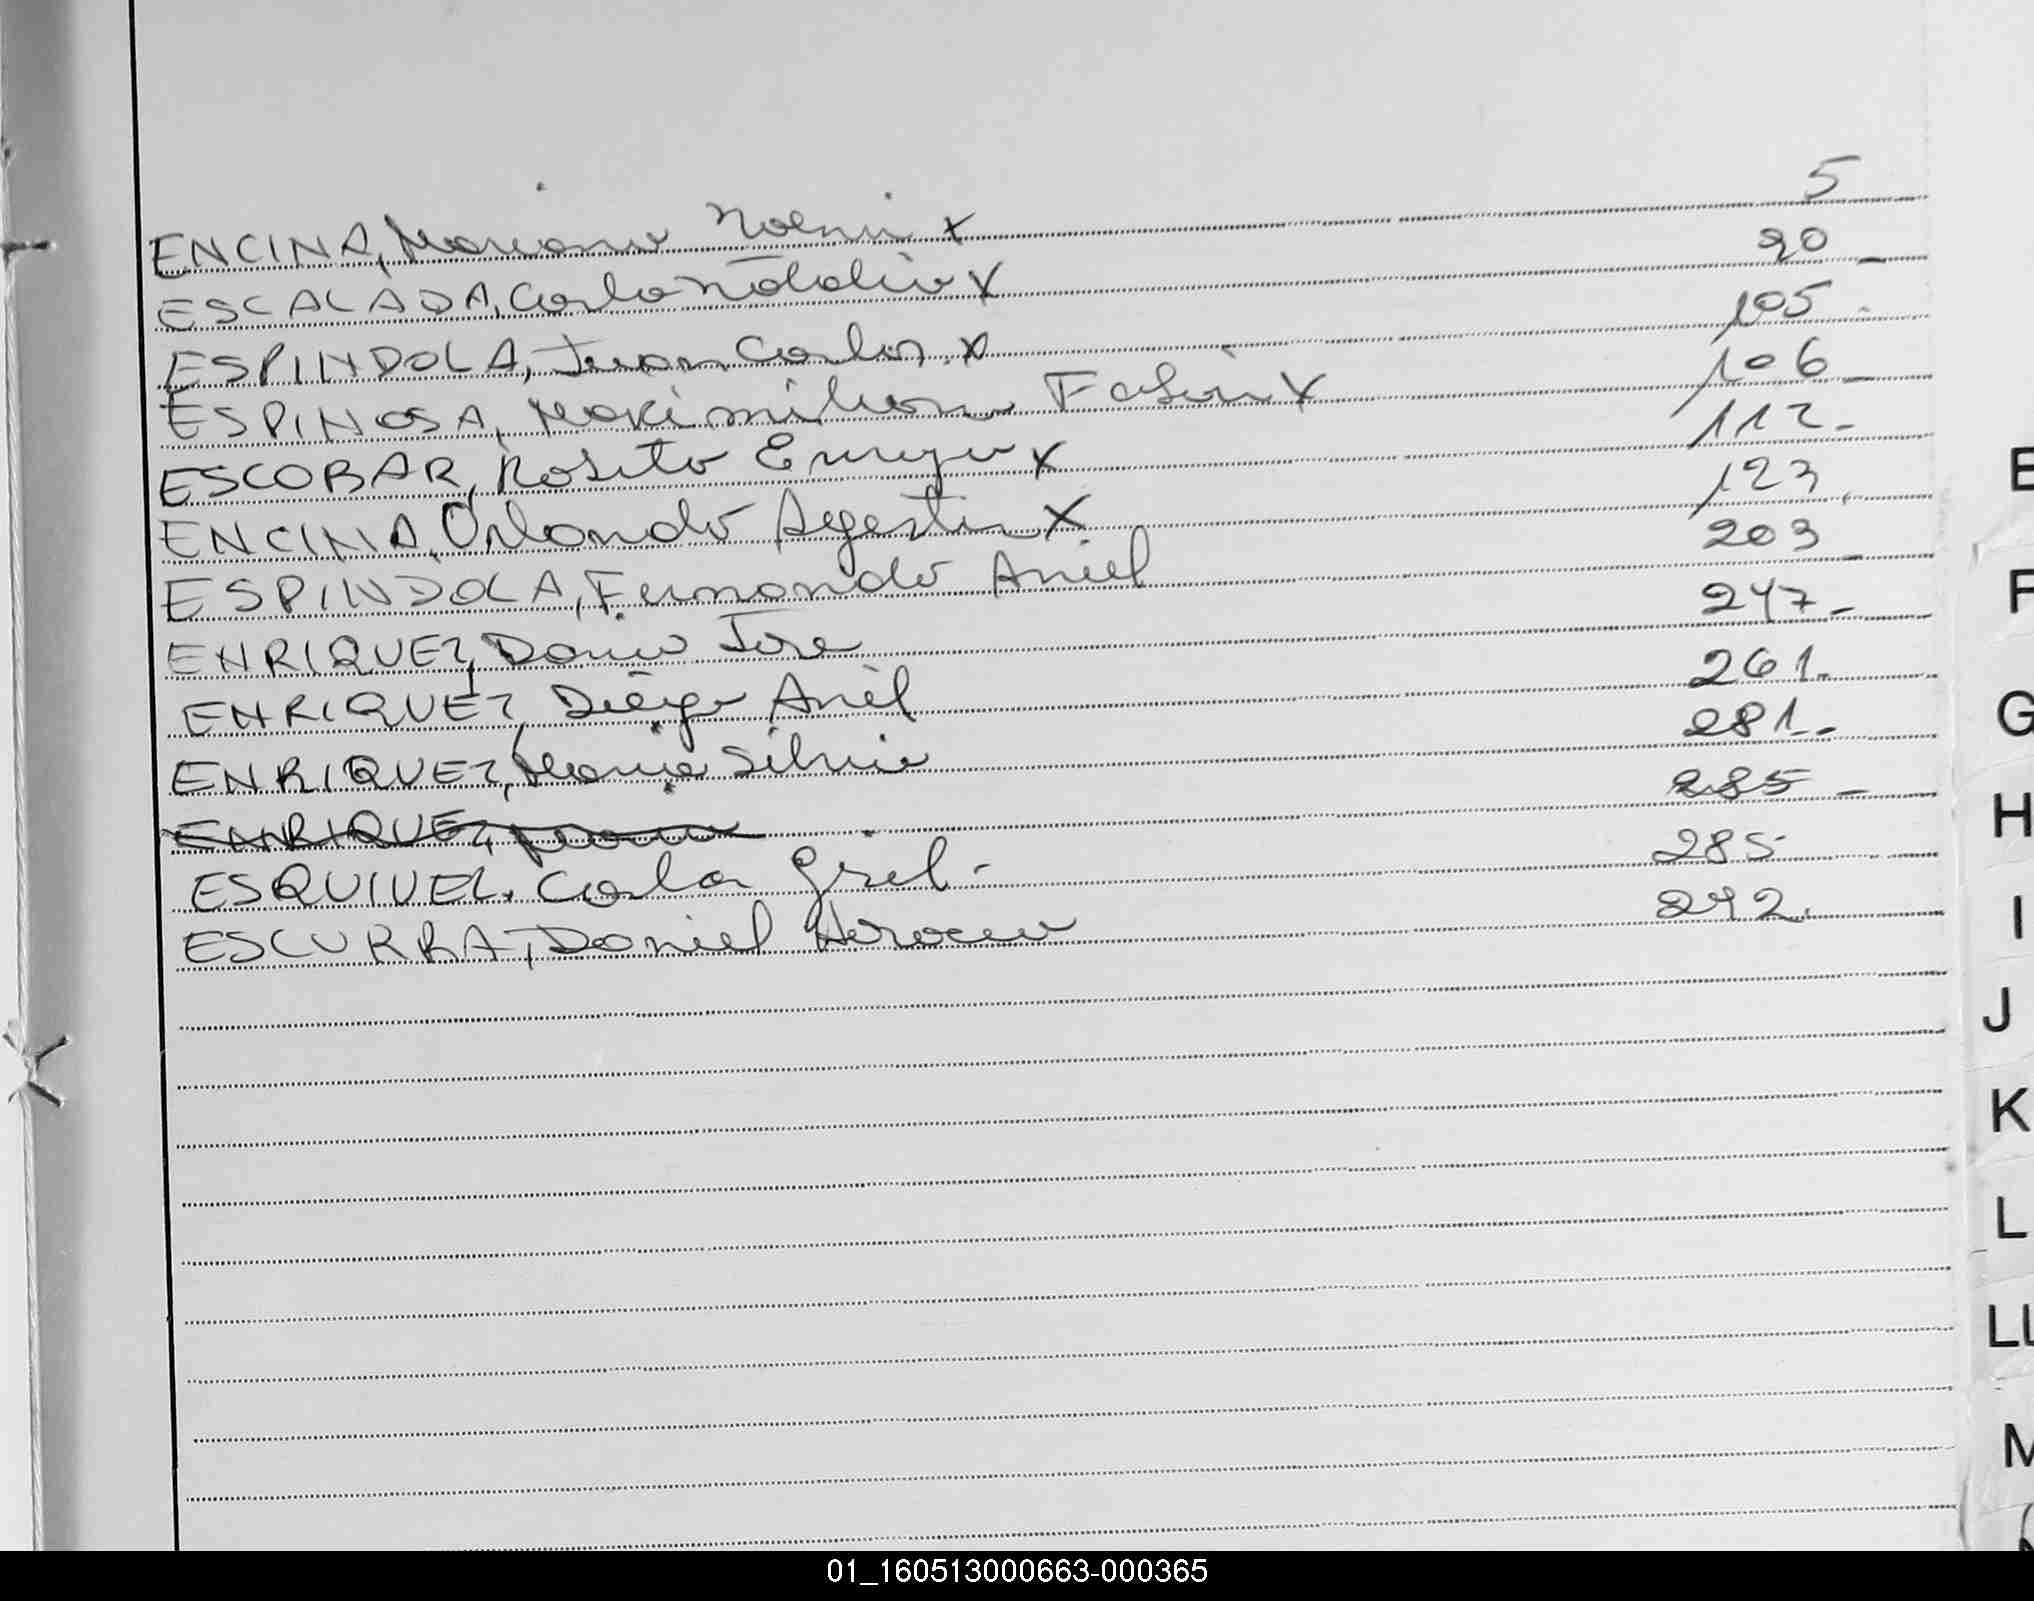 ENCINA, Mariana Noemi x 5
ESCALADA, Carla Natalia x 20 -
ESPINDOLA, Juan Carlos. x 105 -
ESPINOSA, Maximiliano Fabian x 106 -
ESCOBAR, Rosita x 112 -
ENCINA, Orlando Agustin x 123
ESPINDOLA, Fernando Ariel 203 -
ENRIQUEZ, Dario Jose 247 -
ENRIQUEZ, Diego Ariel 261.
ENRIQUEZ, Maria Silvia 281 -
ENRIQUEZ, Maria 285 -
ESQUIVEL, Carlos Gisel - 285
ESCURRA, Daniel Horacio 292.
E
F
G
H
I
J
K
L
LL
M
01_160513000663-000365